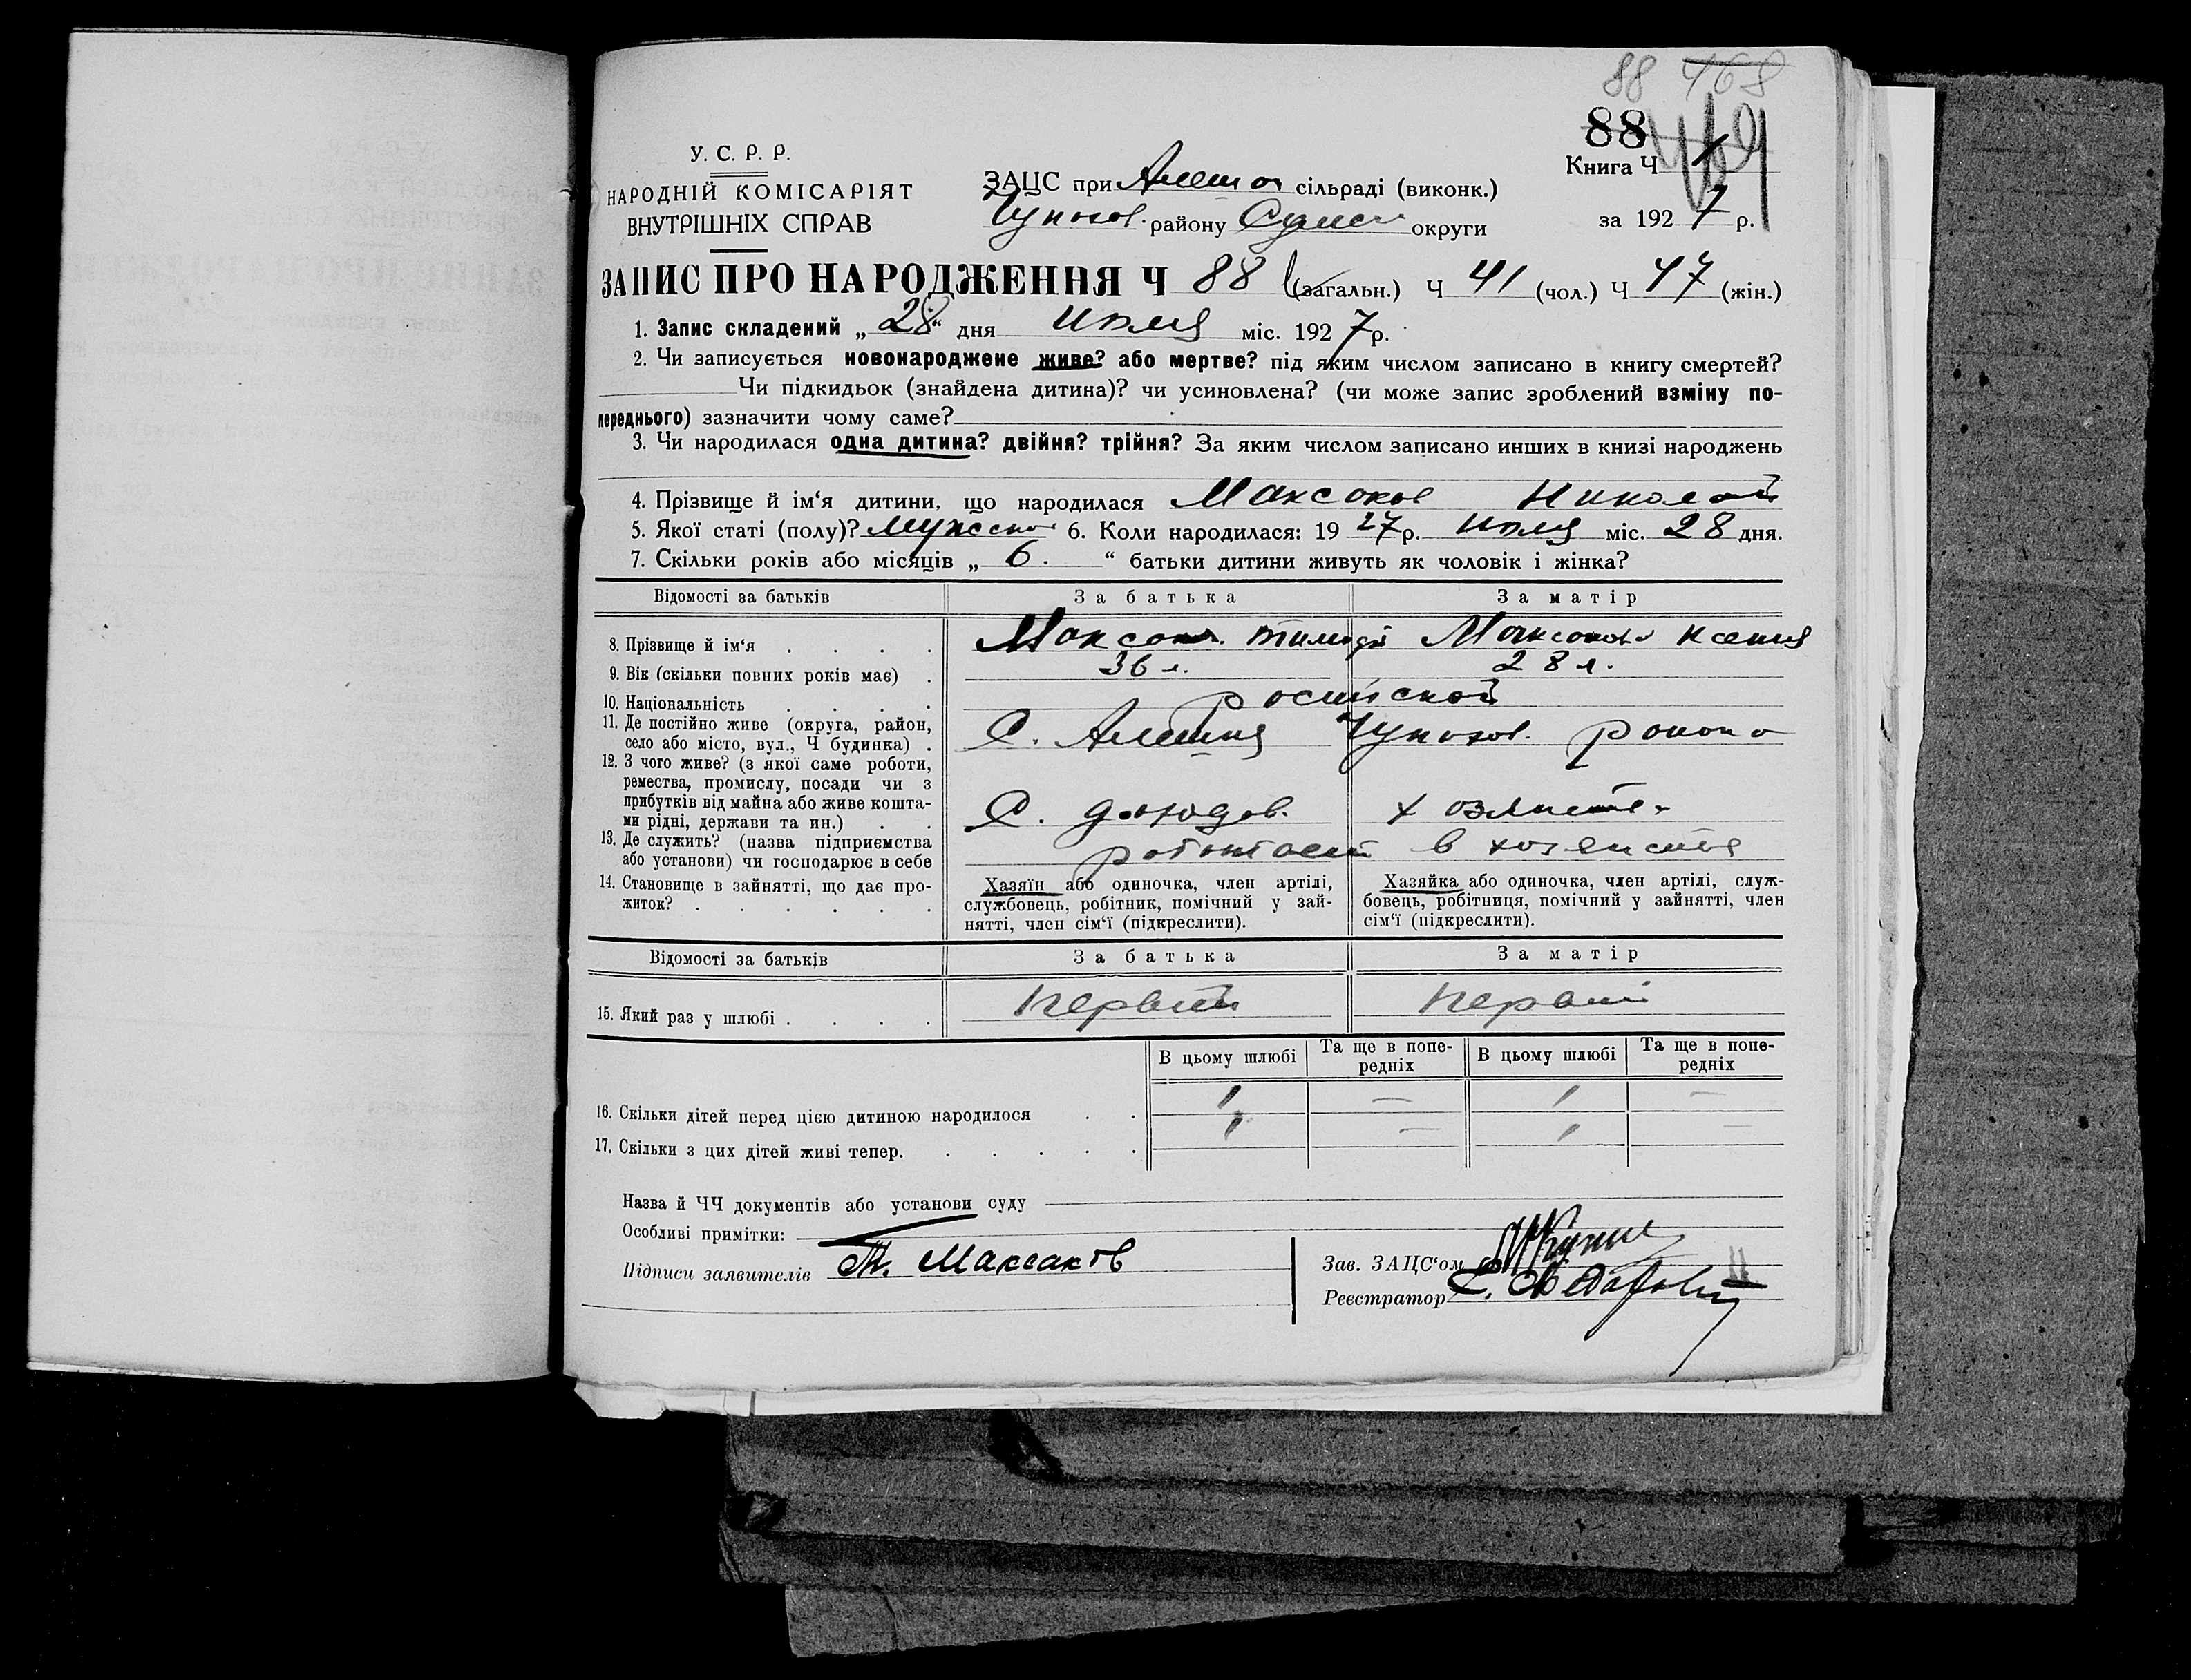 88 468
88 469
У. С. Р. Р.
НАРОДНІЙ КОМІСАРІЯТ
ВНУТРІШНІХ СПРАВ
ЗАЦС при сільраді (виконк.)
району округи
Книга Ч 1
за 1927 р.
ЗАПИС ПРО НАРОДЖЕННЯ Ч 88 (загальн.) Ч 41 (чол.) Ч 47 (жін.)
1. Запис складений „28“ дня июля міс. 1927 р.
2. Чи записується новонароджене живе? або мертве? під яким числом записано в книгу смертей?
Чи підкидьок (знайдена дитина)? чи усиновлена? (чи може запис зроблений взміну по-
переднього) зазначити чому саме?
3. Чи народилася одна дитина? двійня? трійня? За яким числом записано инших в книзі народжень
4. Прізвище й ім‘я дитини, що народилася Максаков Николай
5. Якої статі (полу)? 6. Коли народилася: 1927 р. июля міс. 28 дня.
7. Скільки років або місяців „ 6. “ батьки дитини живуть як чоловік і жінка?
Відомості за батьків За батька За матір
8. Прізвище й ім‘я Максаков Максакова Ксения
9. Вік (скільки повних років має) 36 л. 28 л.
10. Національність
11. Де постійно живе (округа, район,
село або місто, вул., Ч будинка) С.
12. З чого живе? (з якої саме роботи,
ремества, промислу, посади чи з
прибутків від майна або живе кошта-
ми рідні, держави та ин.) С. доходов.
13. Де служить? (назва підприємства
або установи) чи господарює в себе работает в
14. Становище в зайнятті, що дає про-
житок?
Хазяїн або одиночка, член артілі,
службовець, робітник, помічний у зай-
нятті, член сім‘ї (підкреслити).
Хазяйка або одиночка, член артілі, служ-
бовець, робітниця, помічний у зайнятті, член
сім‘ї (підкреслити).
Відомості за батьків За батька За матір
15. Який раз у шлюбі первий
В цьому шлюбі Та ще в попе-
редніх В цьому шлюбі Та ще в попе-
редніх
16. Скільки дітей перед цією дитиною народилося 1 — 1 —
17. Скільки з цих дітей живі тепер. 1 — 1 —
Назва й ЧЧ документів або установи суду
Особливі примітки:
Підписи заявителів Т. Максаков
Зав. ЗАЦС‘ом
Реєстратор